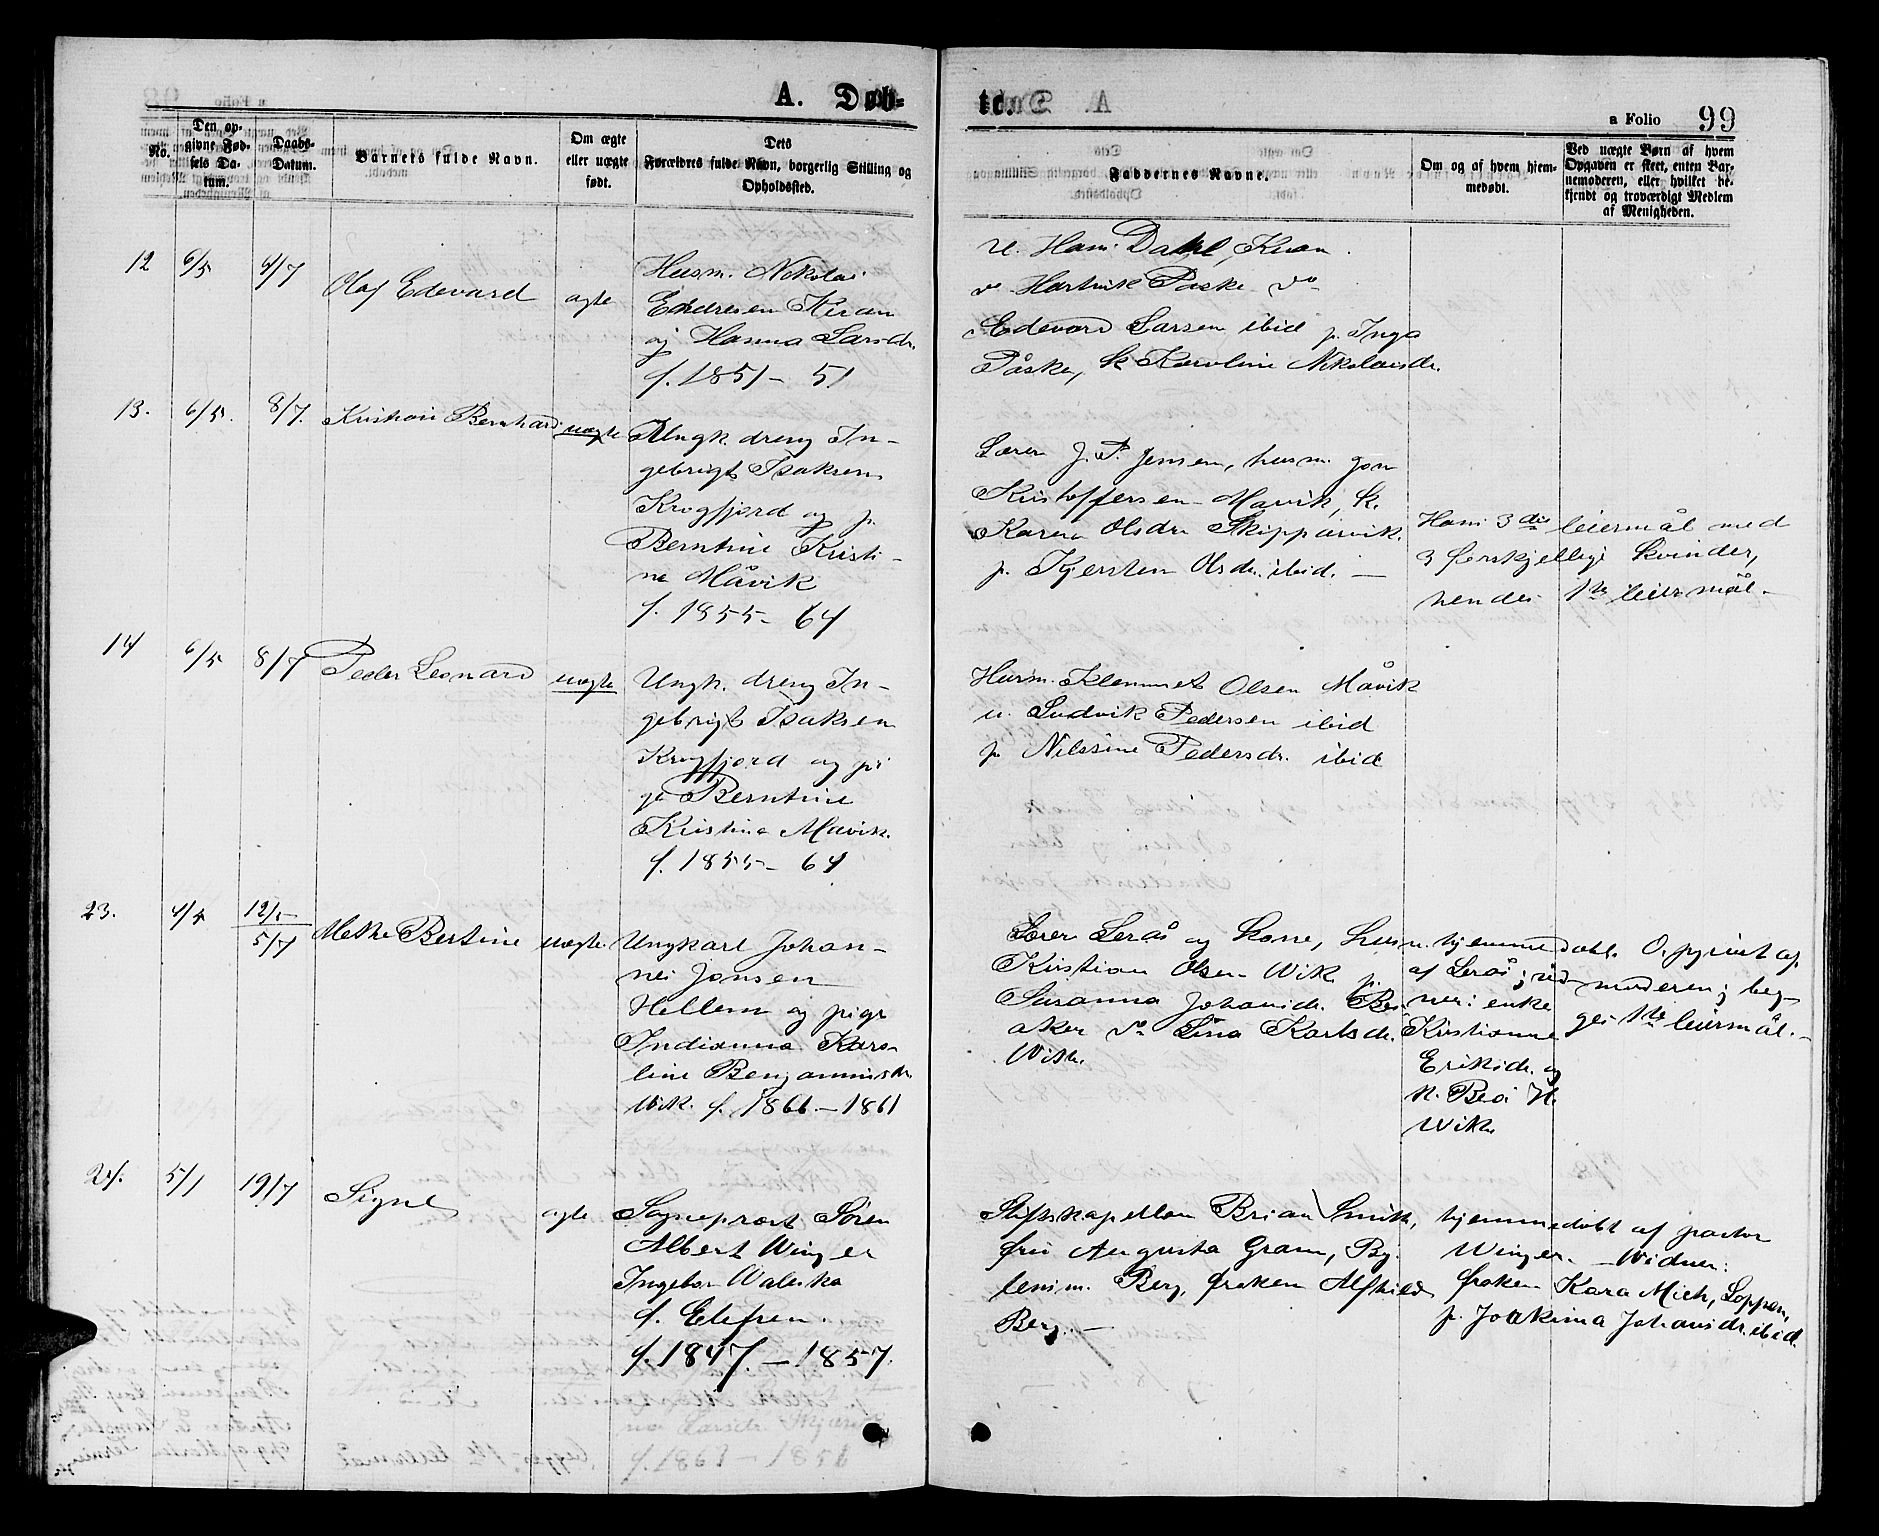 A. Døb-
te.
a Folio 99
No.
Den op-
givne Fød-
sels Da-
tum.
Daabs-
Datum.
Barnets fulde Navn.
Om ægte
eller uægte
født.
Dets
Forældres fulde Navn, borgerlig Stilling og
Opholdssted.
Faddernes Navne.
Om og af hvem hjem-
medøbt.
Ved uægte Børn af hvem
Opgaven er skeet, enten Bar-
nemoderen, eller hvilket be-
kjendt og troværdigt Medlem
af Menigheden.
12 6/5 4/7 Olaf Edevard ægte
Husm. Nikolai
Endresen Kvan
og Hanna Larsdr.
f. 1851 - 51
u. Hans Dahl, Kvan
Hartvik Påske do
Edevard Larsen ibid p. Inga
Påske, k. Karoline Nikolaisdr.
13. 6/5. 8/7. Kristian Bernhard uægte
Ungk. dreng In-
gebrigt Isaksen
Krogfjord og p.
Berntine Kristi-
ne Måvik
f. 1855 - 64
Lærer J. P. Jensen, husm. Jon
Kristoffersen Mavik, k.
Karen Olsdr. Skipparvik.
p. Kjersten Olsdr. ibid. —
Hans 3die leiermål med
3 forskjellige kvinder,
hendes 1ste leiermål.
14 6/5 8/7 Peder Leonard uægte
Ungk. dreng In-
gebrigt Isaksen
Krogfjord og pi
ge Berntine
Kristine Mavik.
f. 1855 - 64
Husm. Klemmet Olsen Måvik
u. Ludvik Pedersen ibid
p. Nilsine Pedersdr. ibid
23. 4/5 12/5 5/7 Metha Bertine uægte
Ungkarl Johan-
nes Jonsen
Hellem og pige
Indianna Karo-
line Benjaminsdr.
Wik. f. 1861 - 1861
Lærer Lerås og kone, husm.
Kristian Olsen Wik p.
Susanna Johansdr.
aker do Lina Karlsdr.
Wik.
hjemmedøbt
af Lerås; vid-
ner: enke
Kristianne
Eriksdr. og
Wik.
Opgivet af
moderen; beg-
ges 1ste leiermål. -
24. 5/1 19/7 Signe ægte
Sogneprest Søren
Albert Winger
Ingebor Waleska
f. Ellefsen.
f. 1847. - 1857.
Stiftskapellan Brian Smith,
fru Augusta Gram,
lensm. Berg, frøken Alfhild
Berg. —
hjemmedøbt af pastor
Winger. - Widner:
frøken Kara Mich, Loppen,
p. Joakima Johansdr. ibid.